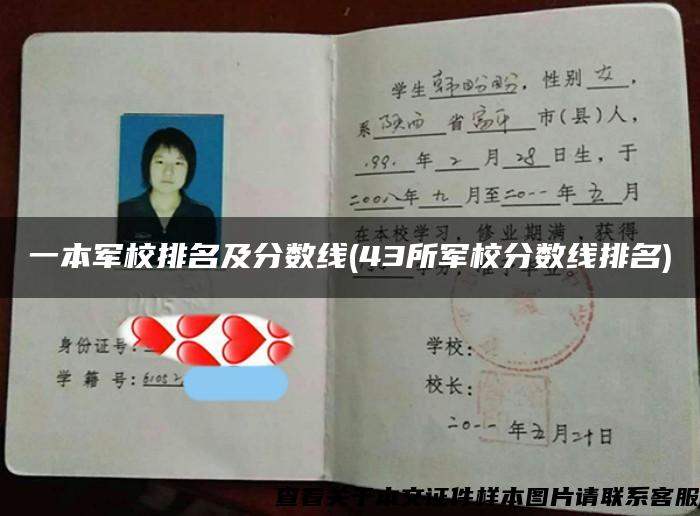 学生韩盼盼，性别女，
系陕西省富平市(县)人，
1991年2月28日生，于
二00八年九月至二0一一年五月
在本校学习，修业期满，获得
一本军校排名及分数线(43所军校分数线排名)
身份证号:
学籍号:61052
学校:
校长:
二0一一年五月二十日
查看关于本文证件样本图片请联系客服